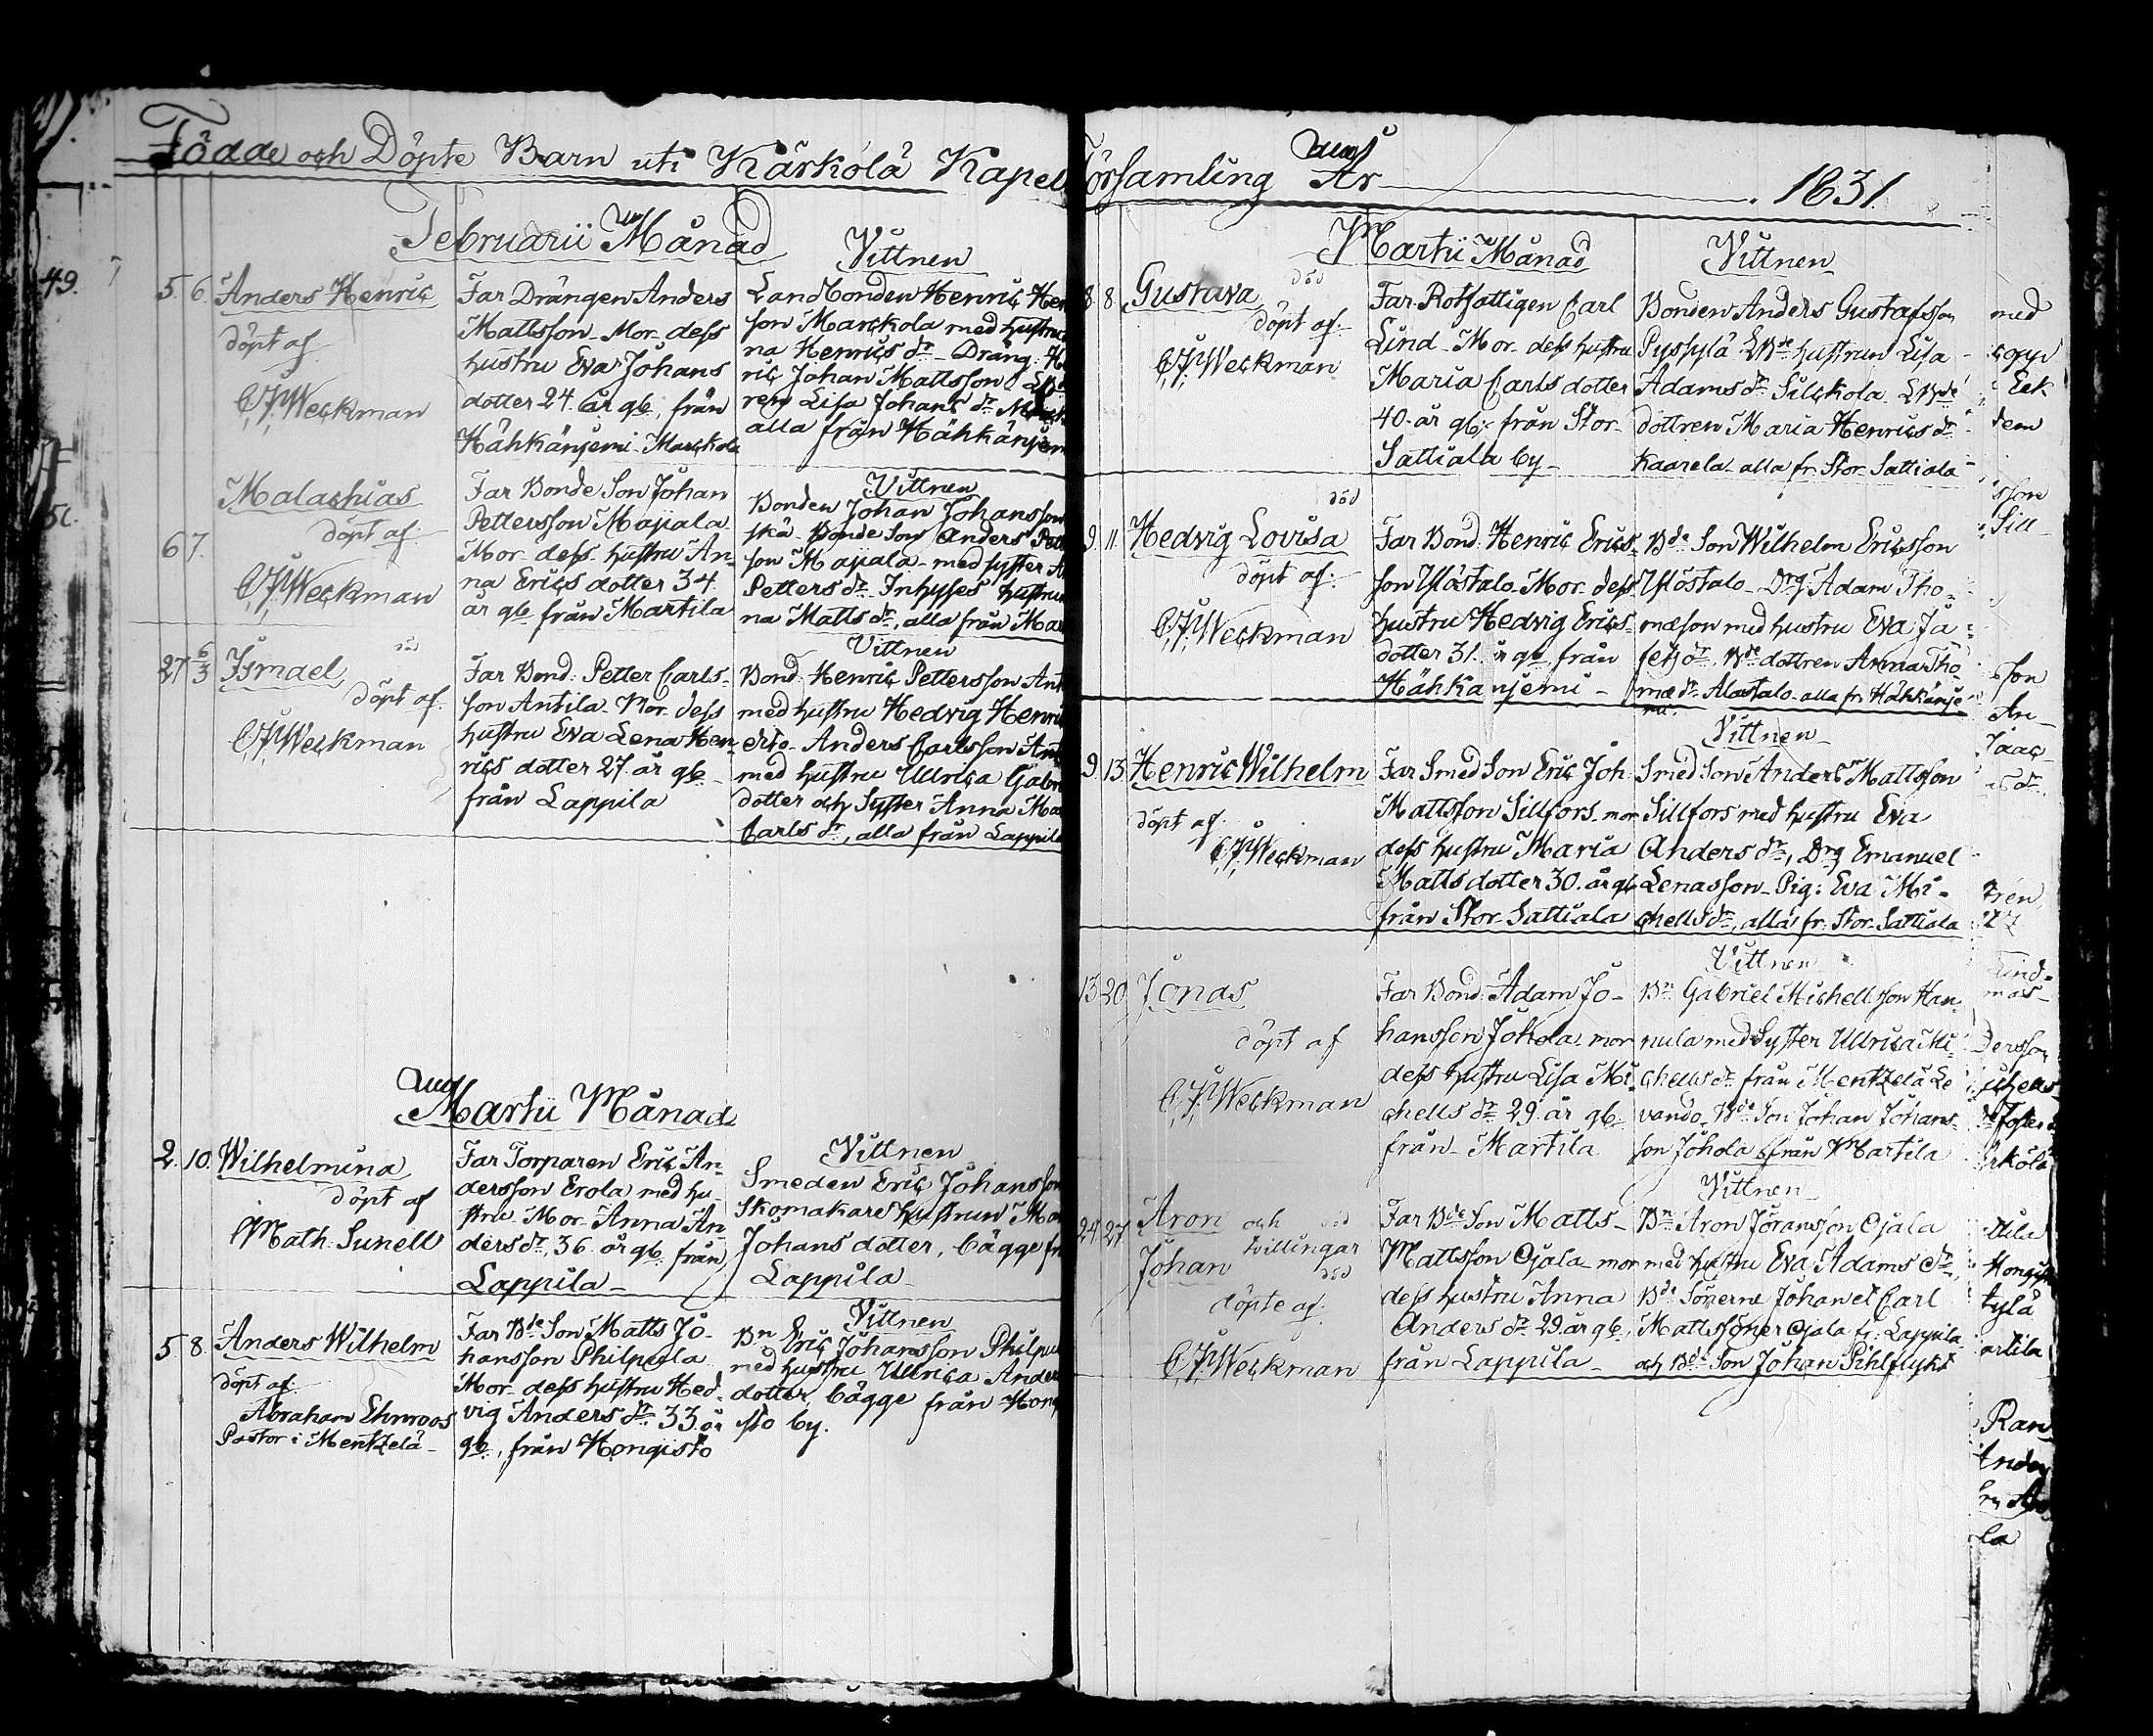 Födde och Döpte Barn uti Kärkölä Kapell
Februarii Månad
5. 6. Anders Henric
döpt af
C.J. Weckman
Far Drängen Anders
Mattsson Mor dess
hustru Eva Johans
dotter 24. år gb, från
Hähkänjemi Marckola
Vittnen
Landbonden Henric Hen
son Marckola med hustru
na Henrics dr Dräng: He
ric Johan Mattsson
ren Lisa Johans dr
alla från Hähkänjem
6 7.
Malachias
döpt af
C.J. Weckman
Far Bonde Son Johan
Pettersson Majiala
Mor dess hustru An-
na Erics dotter 34.
år gb från Martila
Vittnen
Bonden Johan Johansson
skä. Bonde Son Anders Pett
son Majiala med syster A
Petters dr Inhyses hustrun
na Matts dr, alla från Mar
27 6/3 Ismael död
döpt af
C.J. Weckman
Far Bond: Petter Carls-
son Antila Mor dess
hustru Eva Lena Hen
rics dotter 27. år gb
från Lappila
Vittnen
Bond: Henric Pettersson Ant
med hustru Hedvig Henri
dito Anders Carlsson Ant
med hustru Ullrica Gabri
dotter och Syster Anna Ma
Carls dr, alla från Lappila
Martii Månad
2. 10. Wilhelmina
döpt af
Math. Sunell
Far Torparen Eric An-
dersson Erola med hu-
stru Mor Anna An
ders dr, 36. år gb från
Lappila
Vittnen
Smeden Eric Johansson
Skomakare hustrun Mar
Johans dotter, bägge fr
Lappila
5. 8. Anders Wilhelm
döpt af
Abraham Ehnroos
Pastor i Mentzelä
Far Bde Son Matts Jo-
hansson Philpula
Mor dess hustru Hed-
vig Anders dr 33 år
gb, från Hongisto
Vittnen
Bn Eric Johansson Philpu
med hustru Ullrica Ander
dotter, bägge från Hong
sto by.
Församling År 1831
Martii Månad
8. 8. Gustava död
döpt af
C.J. Weckman
Far Rotfattigen Carl
Lind Mor dess hustru
Maria Carls dotter
40. år gb. från Stor
Sattiala by
Vittnen
Bonden Anders Gustafsson
Pyssylä LBde hustrun Lisa
Adams dr Silckola LBde
dottren Maria Henrics dr
Kaarela alla fr. Stor Sattiala
9. 11. Hedvig Lovisa död
döpt af
C.J. Weckman
Far Bond: Henric Erics-
son Ylöstalo Mor dess
hustru Hedvig Erics-
dotter 31. år gb från
Hähkänjemi
Bde Son Wilhelm Ericsson
Ylöstalo Drg Adam Tho-
mæson med hustru Eva Jå
sefs dr, Bde dottren Anna Tho
mæ dr Alastalo alla fr. Hähkänje
mi.
9. 13. Henric Wilhelm
döpt af
C.J. Weckman
Far Smed Son Eric Joh
Mattsson Sillfors mor
dess hustru Maria
Matts dotter 30. år gb
från Stor Sattiala
Vittnen
Smed Son Anders Mattsson
Sillfors med hustru Eva
Anders dr, Drg Emanuel
Lenasson Pig: Eva Mi-
chells dr, alla fr: Stor Sattiala
13 20 Jonas
döpt af
C.J. Weckman
Far Bond: Adam Jo-
hansson Johola mor
dess hustru Lisa Mi
chells dr 29. år gb
från Martila
Vittnen
Bn Gabriel Michellsson Han
nula med Syster Ullrica Mi
chells dr från Mentzelä Le
vando. Bde Son Johan Johans-
son Johola från Martila
24 27 Aron och död
Johan tvillingar
död
döpte af
C.J. Weckman
Far Bde Son Matts
Mattsson Ojala mor
dess hustru Anna
Anders dr 29. år gb,
från Lappila
Vittnen
Bn Aron Jöransson Ojala
med hustru Eva Adams dr,
Bde Sönerne Johan et Carl
Mattssöner Ojala fr: Lappila
och Bde Son Johan Pihlflykt